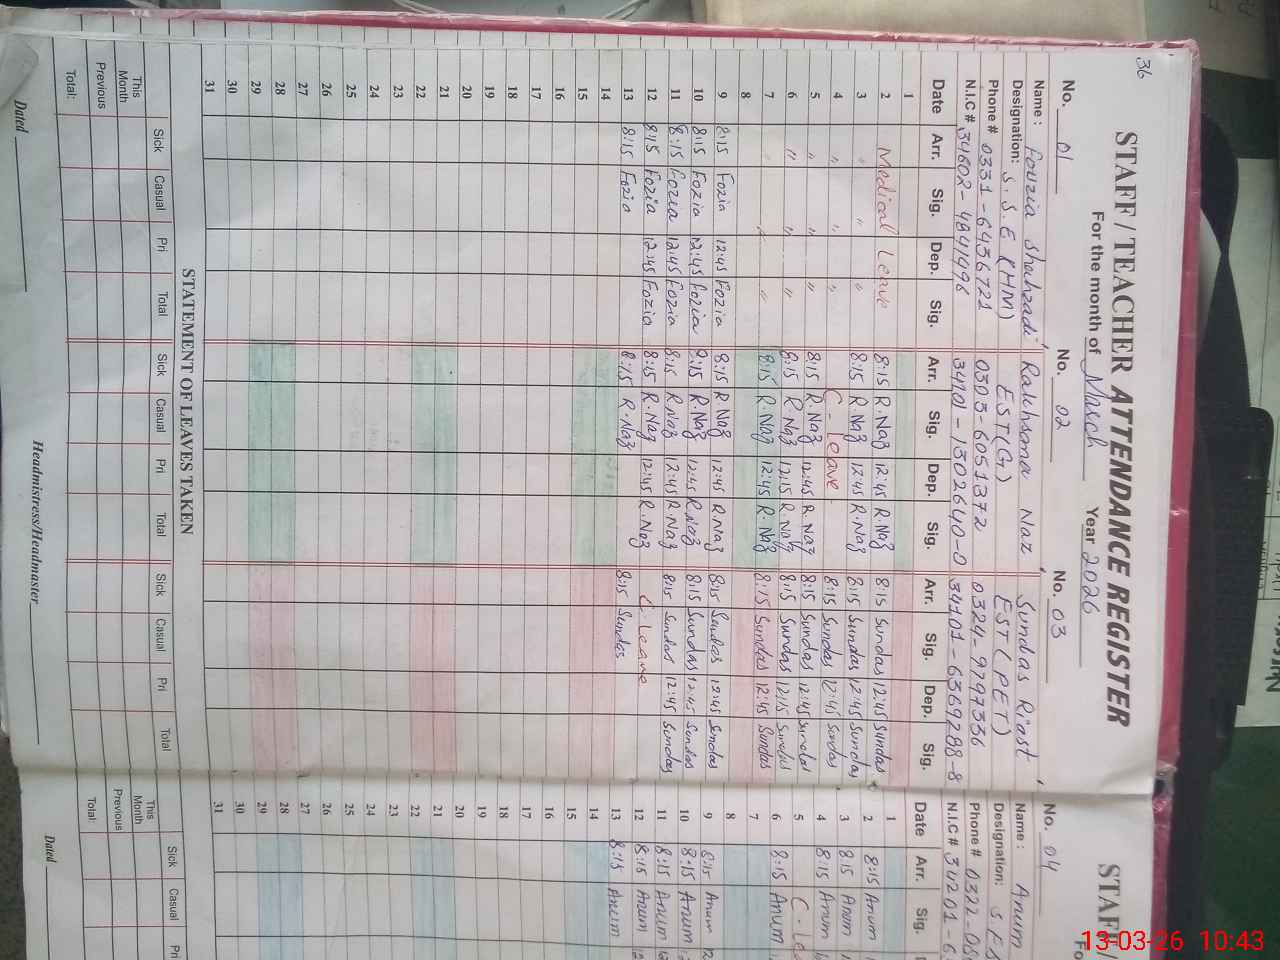 36
STAFF / TEACHER ATTENDANCE REGISTER
For the month of March Year 2026
No. 01 No. 02 No. 03
Name : Fouzia Shahzadi Rakhsana Naz Sundas Riast
Designation: S.S.E (HM) EST(G) EST (PET)
Phone # 0331-6436721 0303-6051372 0324-9797336
N.I.C # 34602-4841496 34101-1302640-0 34101-6369288-8
Date Arr. Sig. Dep. Sig. Arr. Sig. Dep. Sig. Arr. Sig. Dep. Sig.
1
2 Medical Leave 8:15 R.Naz 12:45 R.Naz 8:15 Sundas 12:45 Sundas
3 " " " 8:15 R.Naz 12:45 R.Naz 8:15 Sundas 12:45 Sundas
4 " " " C-Leave 8:15 Sundas 12:45 Sundas
5 " " " 8:15 R.Naz 12:45 R.Naz 8:15 Sundas 12:45 Sundas
6 " " " 8:15 R.Naz 12:15 R.Naz 8:15 Sundas 12:15 Sundas
7 " " " 8:15 R.Naz 12:45 R.Naz 8:15 Sundas 12:45 Sundas
8
9 8:15 Fozia 12:45 Fozia 8:15 R.Naz 12:45 R.Naz 8:15 Sundas 12:45 Sundas
10 8:15 Fozia 12:45 Fozia 8:15 R.Naz 12:45 R.Naz 8:15 Sundas 12:45 Sundas
11 8:15 Fozia 12:45 Fozia 8:15 R.Naz 12:45 R.Naz 8:15 Sundas 12:45 Sundas
12 8:15 Fozia 12:45 Fozia 8:15 R.Naz 12:45 R.Naz C.Leave
13 8:15 Fozia 8:15 R.Naz 8:15 Sundas
14
15
16
17
18
19
20
21
22
23
24
25
26
27
28
29
30
31
STATEMENT OF LEAVES TAKEN
Sick Casual Pri Total Sick Casual Pri Total Sick Casual Pri Total
This Month
Previous
Total:
Dated Headmistress/Headmaster
STAFF /
No. 04
Name : Anum
Designation:
Phone # 0322-
N.I.C # 34201-6
Date Arr. Sig.
1
2 8:15 Anum
3 8:15 Anum
4 8:15 Anum
5 C-Le
6 8:15 Anum
7
8
9 8:15 Anum
10 8:15 Anum
11 8:15 Anum
12 8:15 Anum
13 8:15 Anum
14
15
16
17
18
19
20
21
22
23
24
25
26
27
28
29
30
31
Sick Casual Pri
This Month
Previous
Total:
Dated
13-03-26 10:43